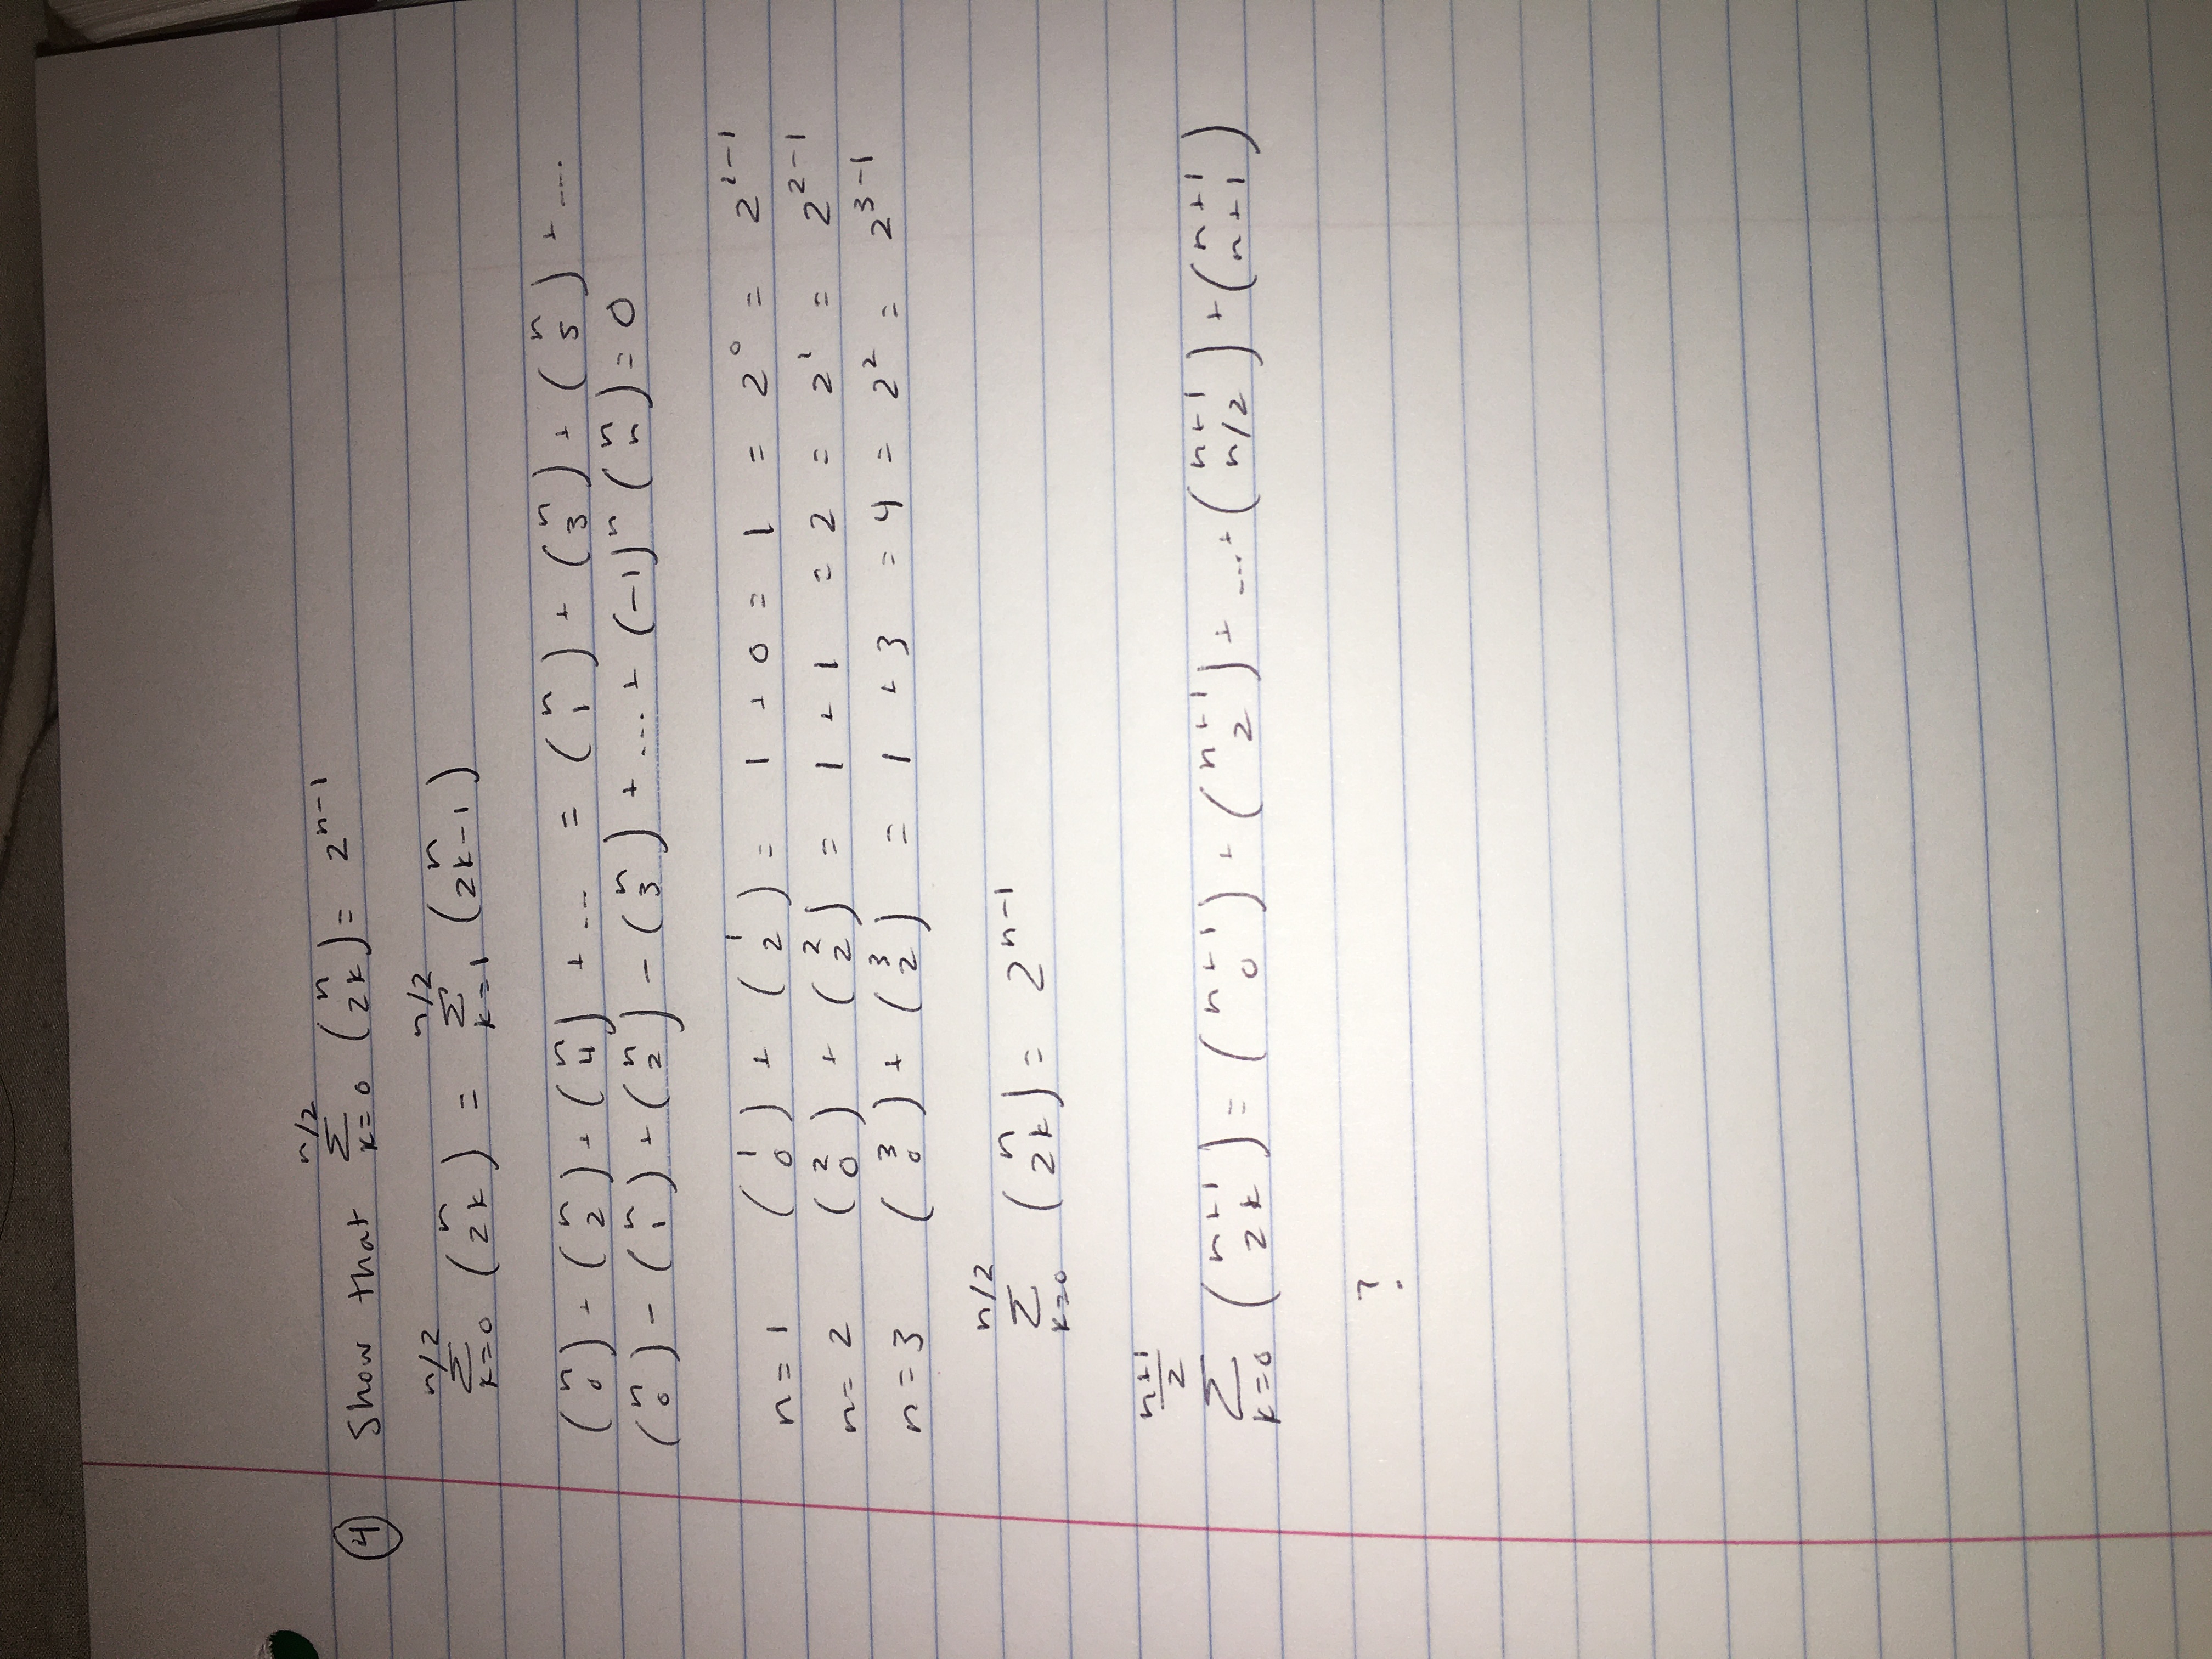 ④ Show that $\sum_{k=0}^{n/2} \binom{n}{2k} = 2^{n-1}$
$\sum_{k=0}^{n/2} \binom{n}{2k} = \sum_{k=1}^{n/2} \binom{n}{2k-1}$
$\binom{n}{0} + \binom{n}{2} + \binom{n}{4} + \ldots = \binom{n}{1} + \binom{n}{3} + \binom{n}{5} + \ldots$
$\binom{n}{0} - \binom{n}{1} + \binom{n}{2} - \binom{n}{3} + \ldots + (-1)^n \binom{n}{n} = 0$
$n = 1 \quad \binom{1}{0} + \binom{1}{2} = 1 + 0 = 1 = 2^0 = 2^{1-1}$
$n = 2 \quad \binom{2}{0} + \binom{2}{2} = 1 + 1 = 2 = 2^1 = 2^{2-1}$
$n = 3 \quad \binom{3}{0} + \binom{3}{2} = 1 + 3 = 4 = 2^2 = 2^{3-1}$
$\sum_{k=0}^{n/2} \binom{n}{2k} = 2^{n-1}$
$\sum_{k=0}^{\frac{n+1}{2}} \binom{n+1}{2k} = \binom{n+1}{0} + \binom{n+1}{2} + \ldots + \binom{n+1}{n/2} + \binom{n+1}{n+1}$
?